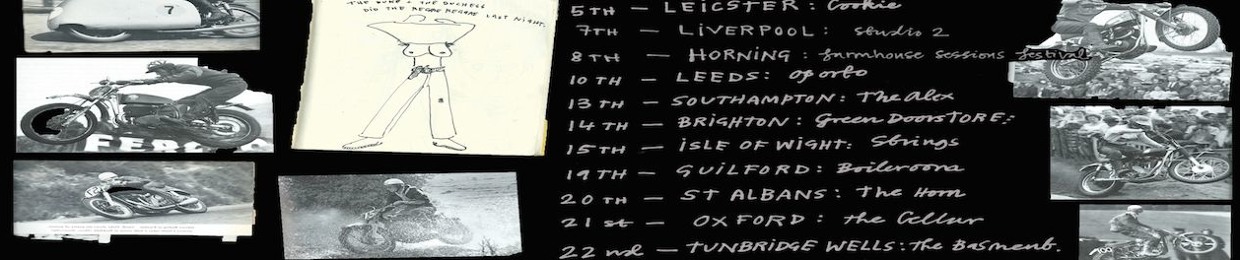 THE DUKE & THE DUCHESS
DID THE REGAE REGGAE LAST NIGHT.
7
FERO
5TH — LEICSTER: Cookie
7TH — LIVERPOOL: studio 2
8TH — HORNING: farmhouse sessions festival
10TH — LEEDS: oporbo
13TH — SOUTHAMPTON: The Alex
14TH — BRIGHTON: Green DoorSTORE:
15TH — ISLE OF WIGHT: Strings
19TH — GUILFORD: Boileroom
20TH — ST ALBANS: The Horn
21st — OXFORD: the Cellar
22nd — TUNBRIDGE WELLS: the Basment.